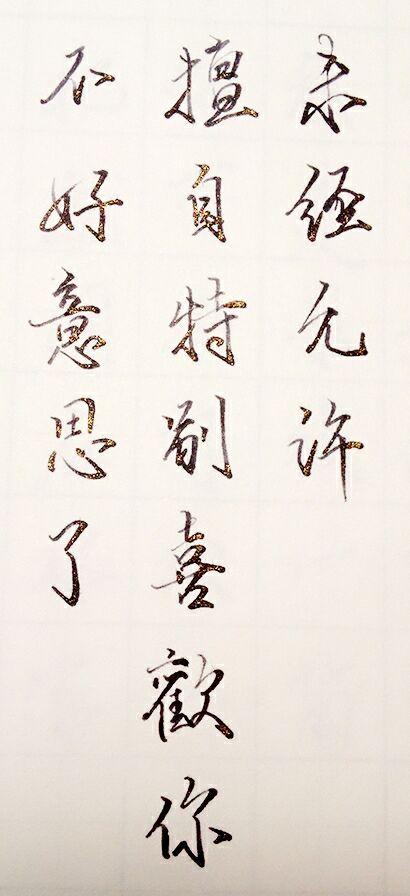 未经允许
擅自特别喜歡你
不好意思了